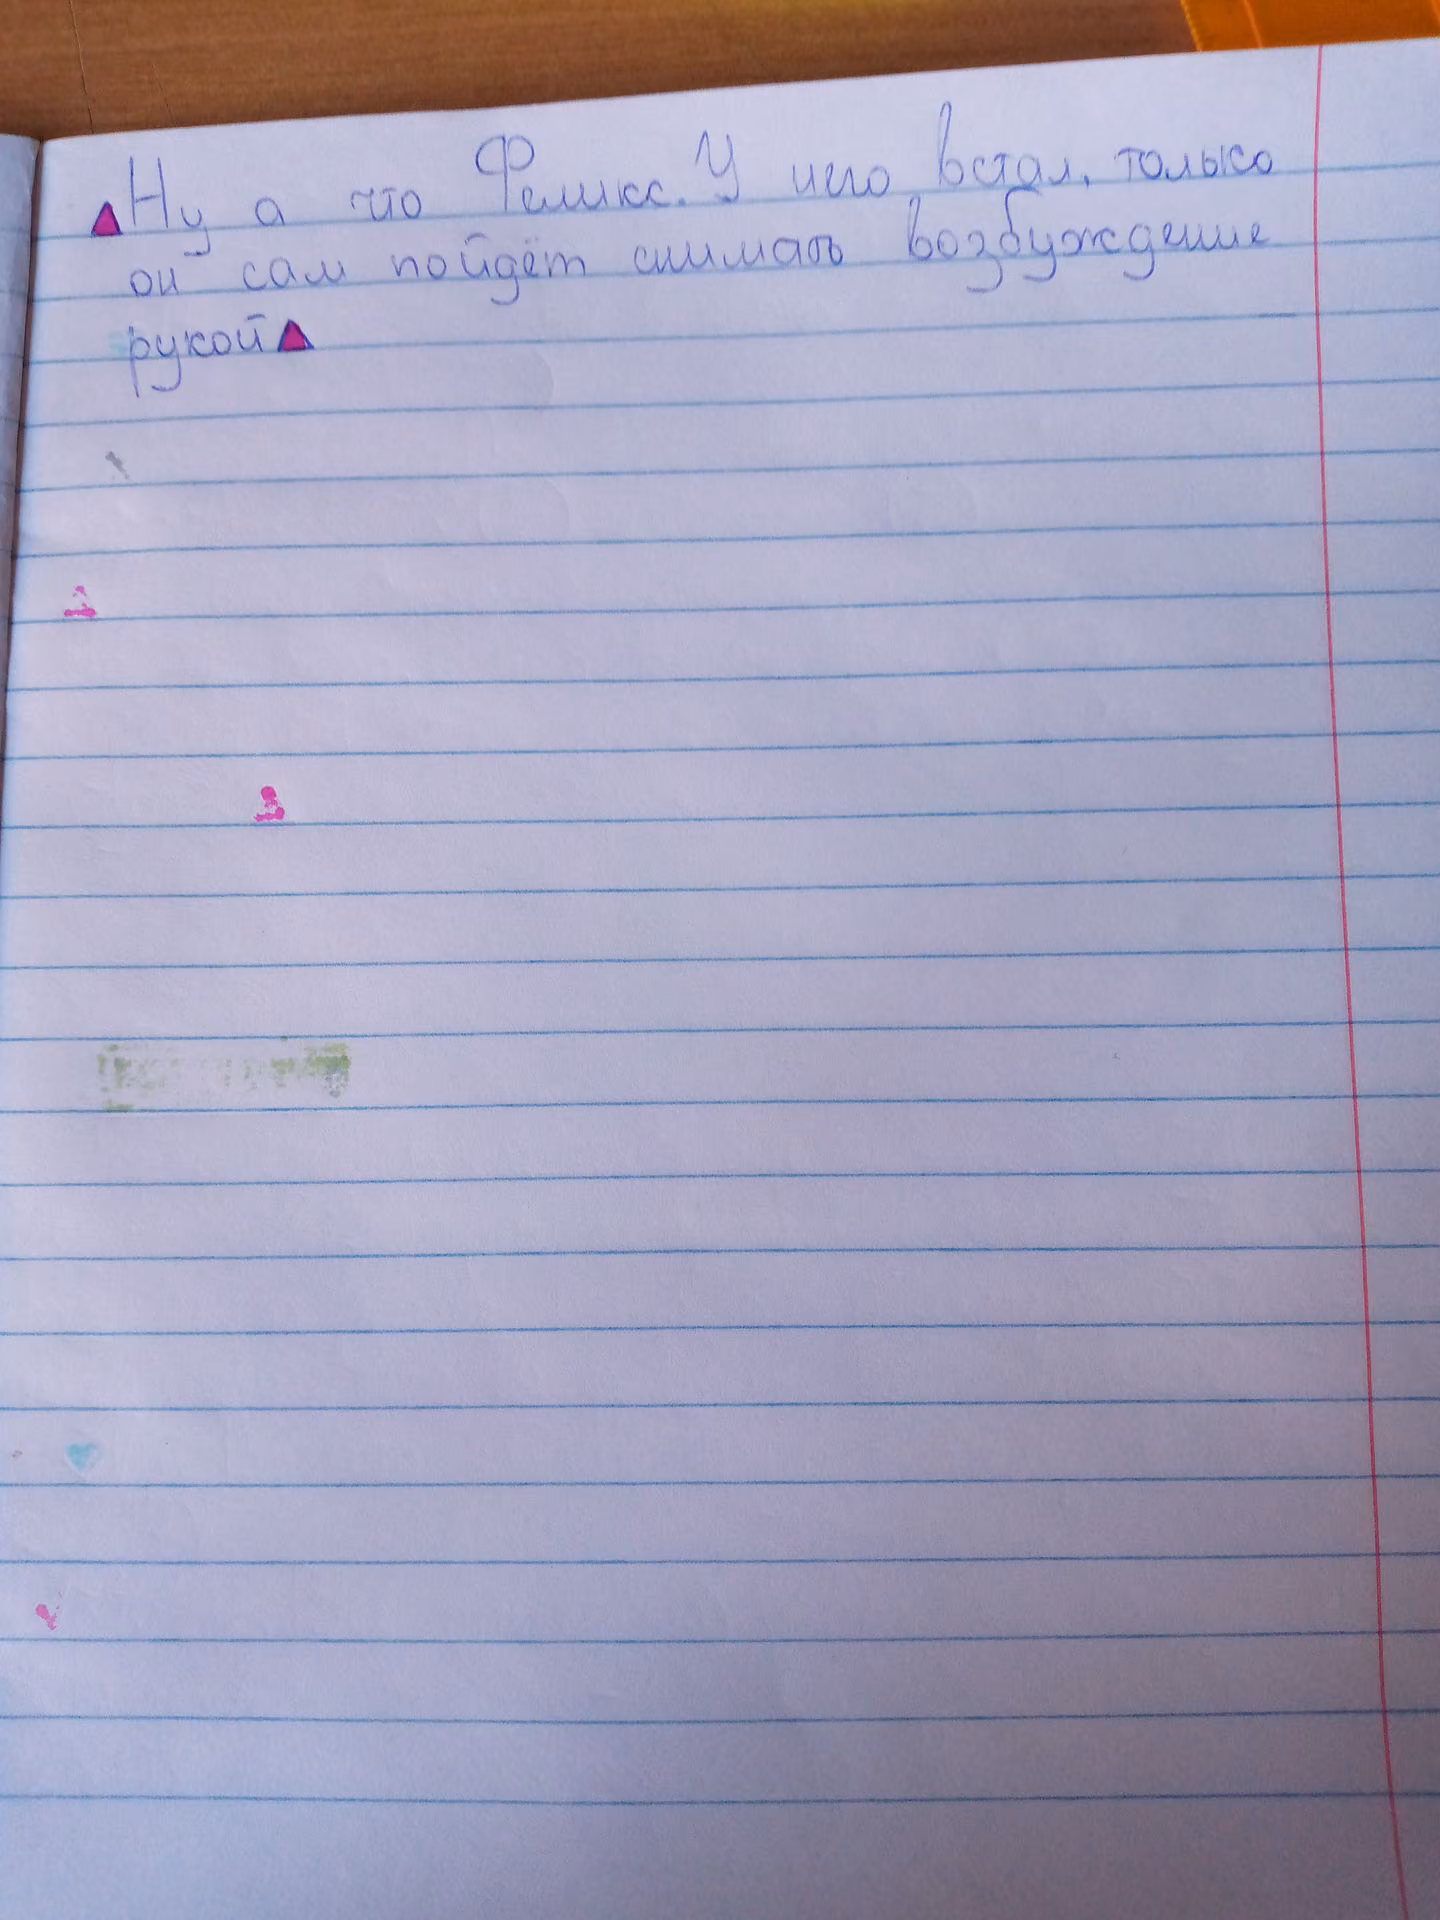 Ну а что Феликс. У него встал, только
он сам пойдёт снимать возбуждение
рукой